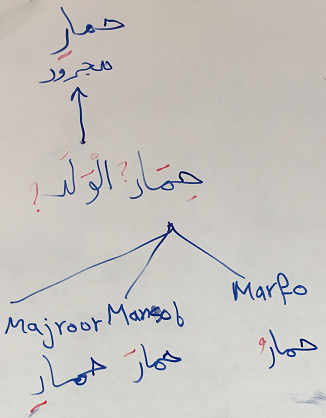 حمارِ
مجرور
حِمَار? الْوَلَد?
Majroor Mansob Marfo
حمارِ حمارَ حمارُ